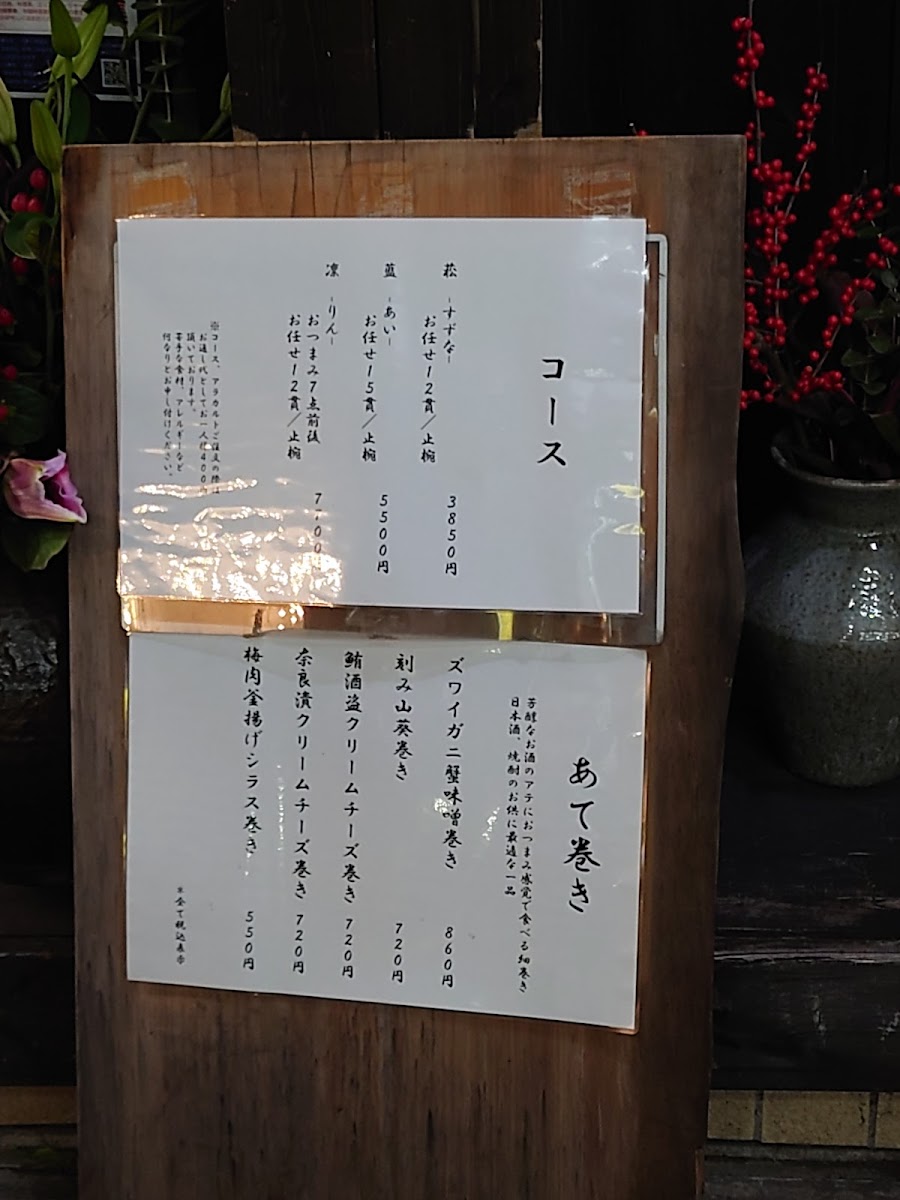 コース
菘 -すずな-
お任せ12貫/止椀 3850円
藍 -あい-
お任せ15貫/止椀 5500円
凛 -りん-
おつまみ7点前後
お任せ12貫/止椀 7700
※コース、アラカルトご注文の際は
お通し代としてお一人様400円
頂いております。
苦手な食材、アレルギーなど
何なりとお申し付けください。
あて巻き
芳醇なお酒のアテにおつまみ感覚で食べる細巻き
日本酒、焼酎のお供に最適な一品
ズワイガニ蟹味噌巻き 860円
刻み山葵巻き 720円
鮪酒盗クリームチーズ巻き 720円
奈良漬クリームチーズ巻き 720円
梅肉釜揚げシラス巻き 550円
※全て税込表示